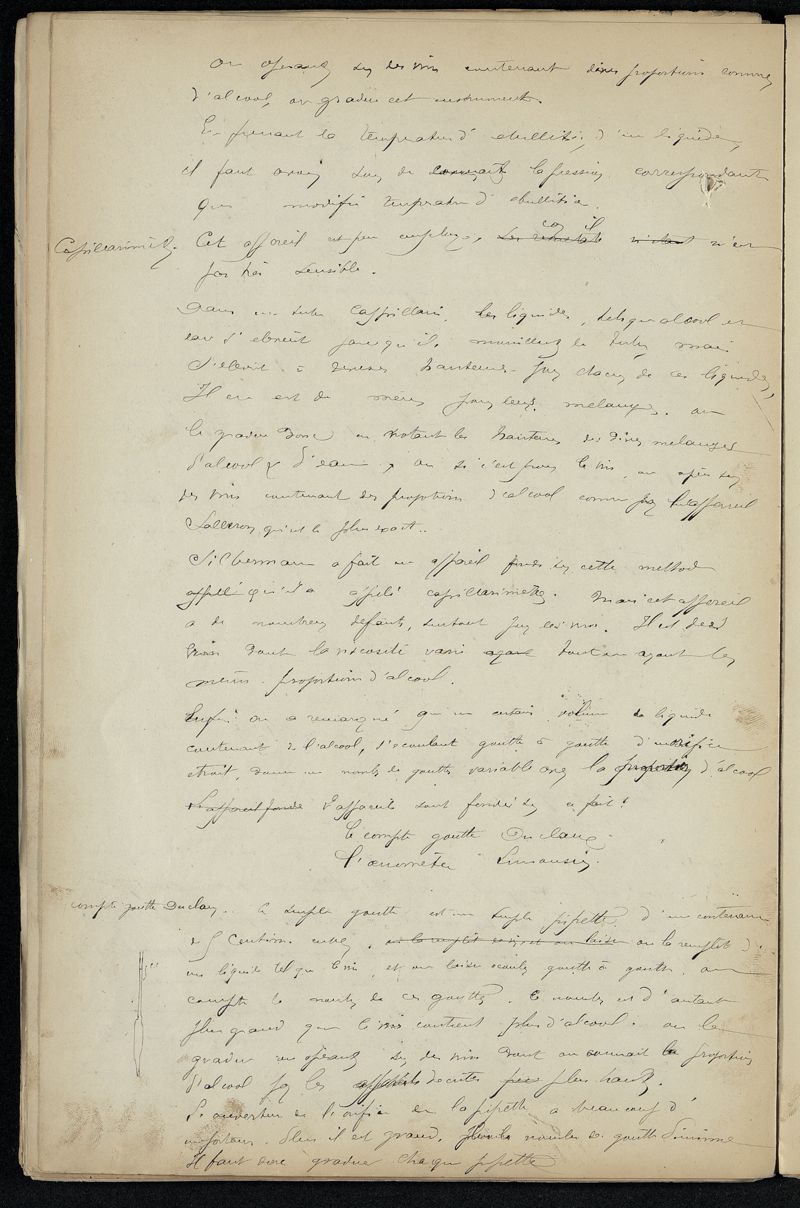 En opérant sur des vins contenant dives proportions connues
d'alcool, on gradue cet instrument.
En prenant la température d'ebullition d'un liquide,
il faut avoir soin de connait la pression correspondante
qui modifie température d'ebullition.
Capillarimètre. Cet appareil est peu employé, car il n'est
pas très sensible.
Dans un tube Capillaire, les liquides, tels que alcool et
eau s'elevent jusqu'ils mouillent le tube mais
s'elevent à diverses hauteurs pour chacun de ces liquides,
Il en est de même pour leurs mélanges. on
le gradue donc en notant les hauteurs des dives mélanges
d'alcool & d'eau, ou si c'est pour le vin, on opère sur
des vins contenant des proportions d'alcool connue par l'appareil
Salleron qui est le plus exact..
Silbermann a fait un appareil fondé sur cette méthode
qu'il a appelé capillarimètre. Mais cet appareil
a de nombreux défauts, surtout pour les vins. Il est des
vins dont la viscosité varie tout en ayant les
mêmes proportions d'alcool.
Enfin on a remarqué qu'un certain volume de liquide
contenant de l'alcool, s'écoulant goutte à goutte d'un orifice
etroit, donne un nombre de gouttes variable avec la proportion d'alcool
2 appareils sont fondés sur ce fait:
Le compte goutte Duclaux
L'oenomètre Limousin.
compte goutte Duclaux. Le compte goutte est une simple pipette d'une contenance
de 5 Centim. cubes, on la remplit d'
un liquide tel que le vin, et on laisse écouler goutte à goutte, on
compte le nombre de ces gouttes. Le nombre est d'autant
plus grand que le vin contient plus d'alcool. on la
gradue en opérant sur des vins dont on connait la proportion
d'alcool par les appareils decrites plus haut.
L'ouverture de l'orifice de la pipette a beaucoup d'
importance. Plus il est grand, plus le nombre de goutte diminue
Il faut donc graduer chaque pipette